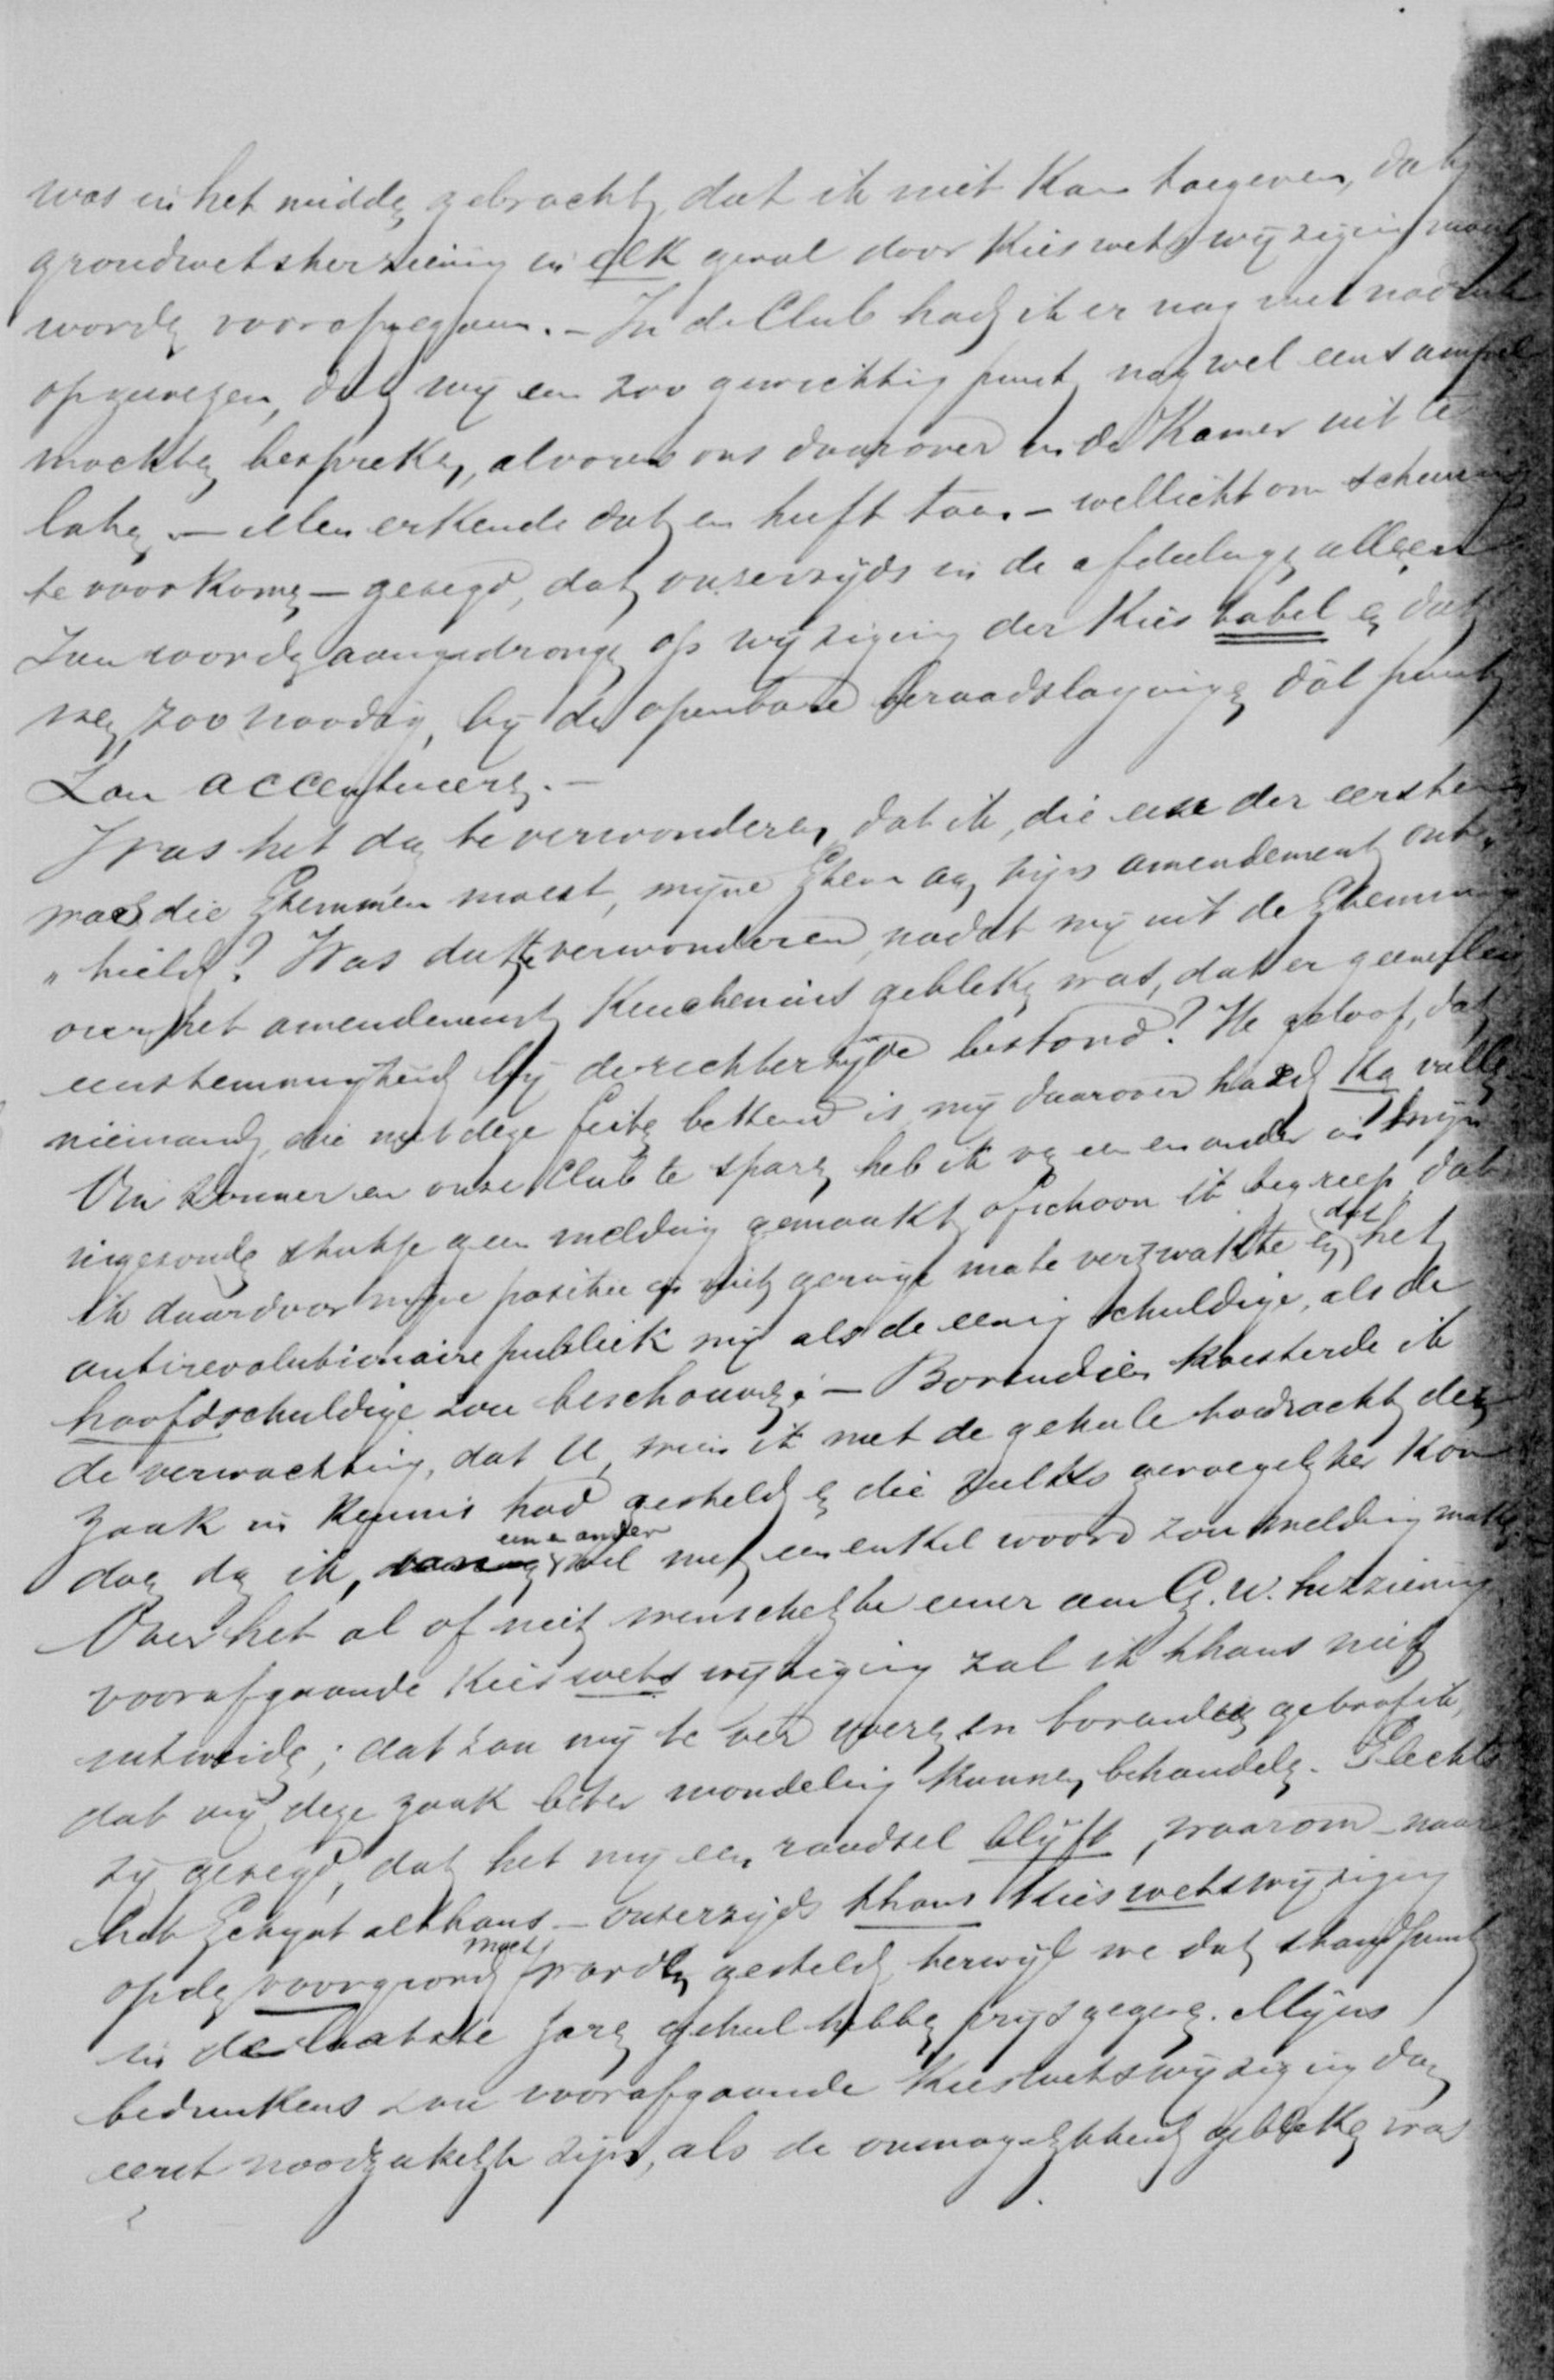 was in het midden gebracht, dat ik niet kan toegeven, dat
grondwetsherziening in elk geval door Kieswetswijziging moet
worden voorafgegaan. – In de Club had ik er nog met nadruk
op gewezen, dat wij een zoo gewichtig punt nog wel eens ampel
mochten bespreken, alvorens ons daarover in de Kamer uit te
laten. – Men erkende dat en heeft toen – wellicht om scheuring
te voorkomen – gezegd, dat onzerzijds in de afdeelingen alleen
zou worden aangedrongen op wijziging der Kiestabel en dat
men, zoo noodig, bij de openbare beraadslagingen dat punt
zou accentueeren. –
Was het dan te verwonderen, dat ik, die een der eersten
was die stemmen moest, mijne stem aan zijn amendement ont„
„hield? Was dat te verwonderen, nadat mij uit de stemming
over het amendement Keuchenius gebleken was, dat er geene
eenstemmigheid bij de rechterzijde bestond? Ik geloof, dat
niemand, die met deze feiten bekend is mij daarover hard kan vallen.
Om Donner en onze Club te sparen heb ik van een en ander in mijn
ingezonden stukje geen melding gemaakt, ofschoon ik begreep dat
ik daardoor mijne positie in niet geringe mate verzwakte en dat het
antirevolutionaire publiek mij als de eenig schuldige, als de
hoofdschuldige zou beschouwen. – Bovendien koesterde ik
de verwachting, dat U, wien ik met de geheele toedracht der
zaak in kennis had gesteld en die zulks gevoegelijker kon
doen dan ik, een en ander wel met een enkel woord zou melding maken.
Over het al of niet wenschelijke eener aan G.W. herziening
voorafgaande Kieswetswijziging zal ik thans niet
uitweiden; dat zou mij te ver voeren en bovendien geloof ik,
dat wij deze zaak beter mondeling kunnen behandelen. Slechts
zij gezegd, dat het mij een raadsel blijft, waarom – naar
het schijnt althans – onzerzijds thans Kieswetswijziging
op den voorgrond moet worden gesteld, terwijl we dat standpunt
in de laatste jaren geheel hebben prijsgegeven. Mijns
bedunkens zou voorafgaande Kieswetswijziging dan
eerst noodzakelijk zijn, als de onmogelijkheid gebleken was